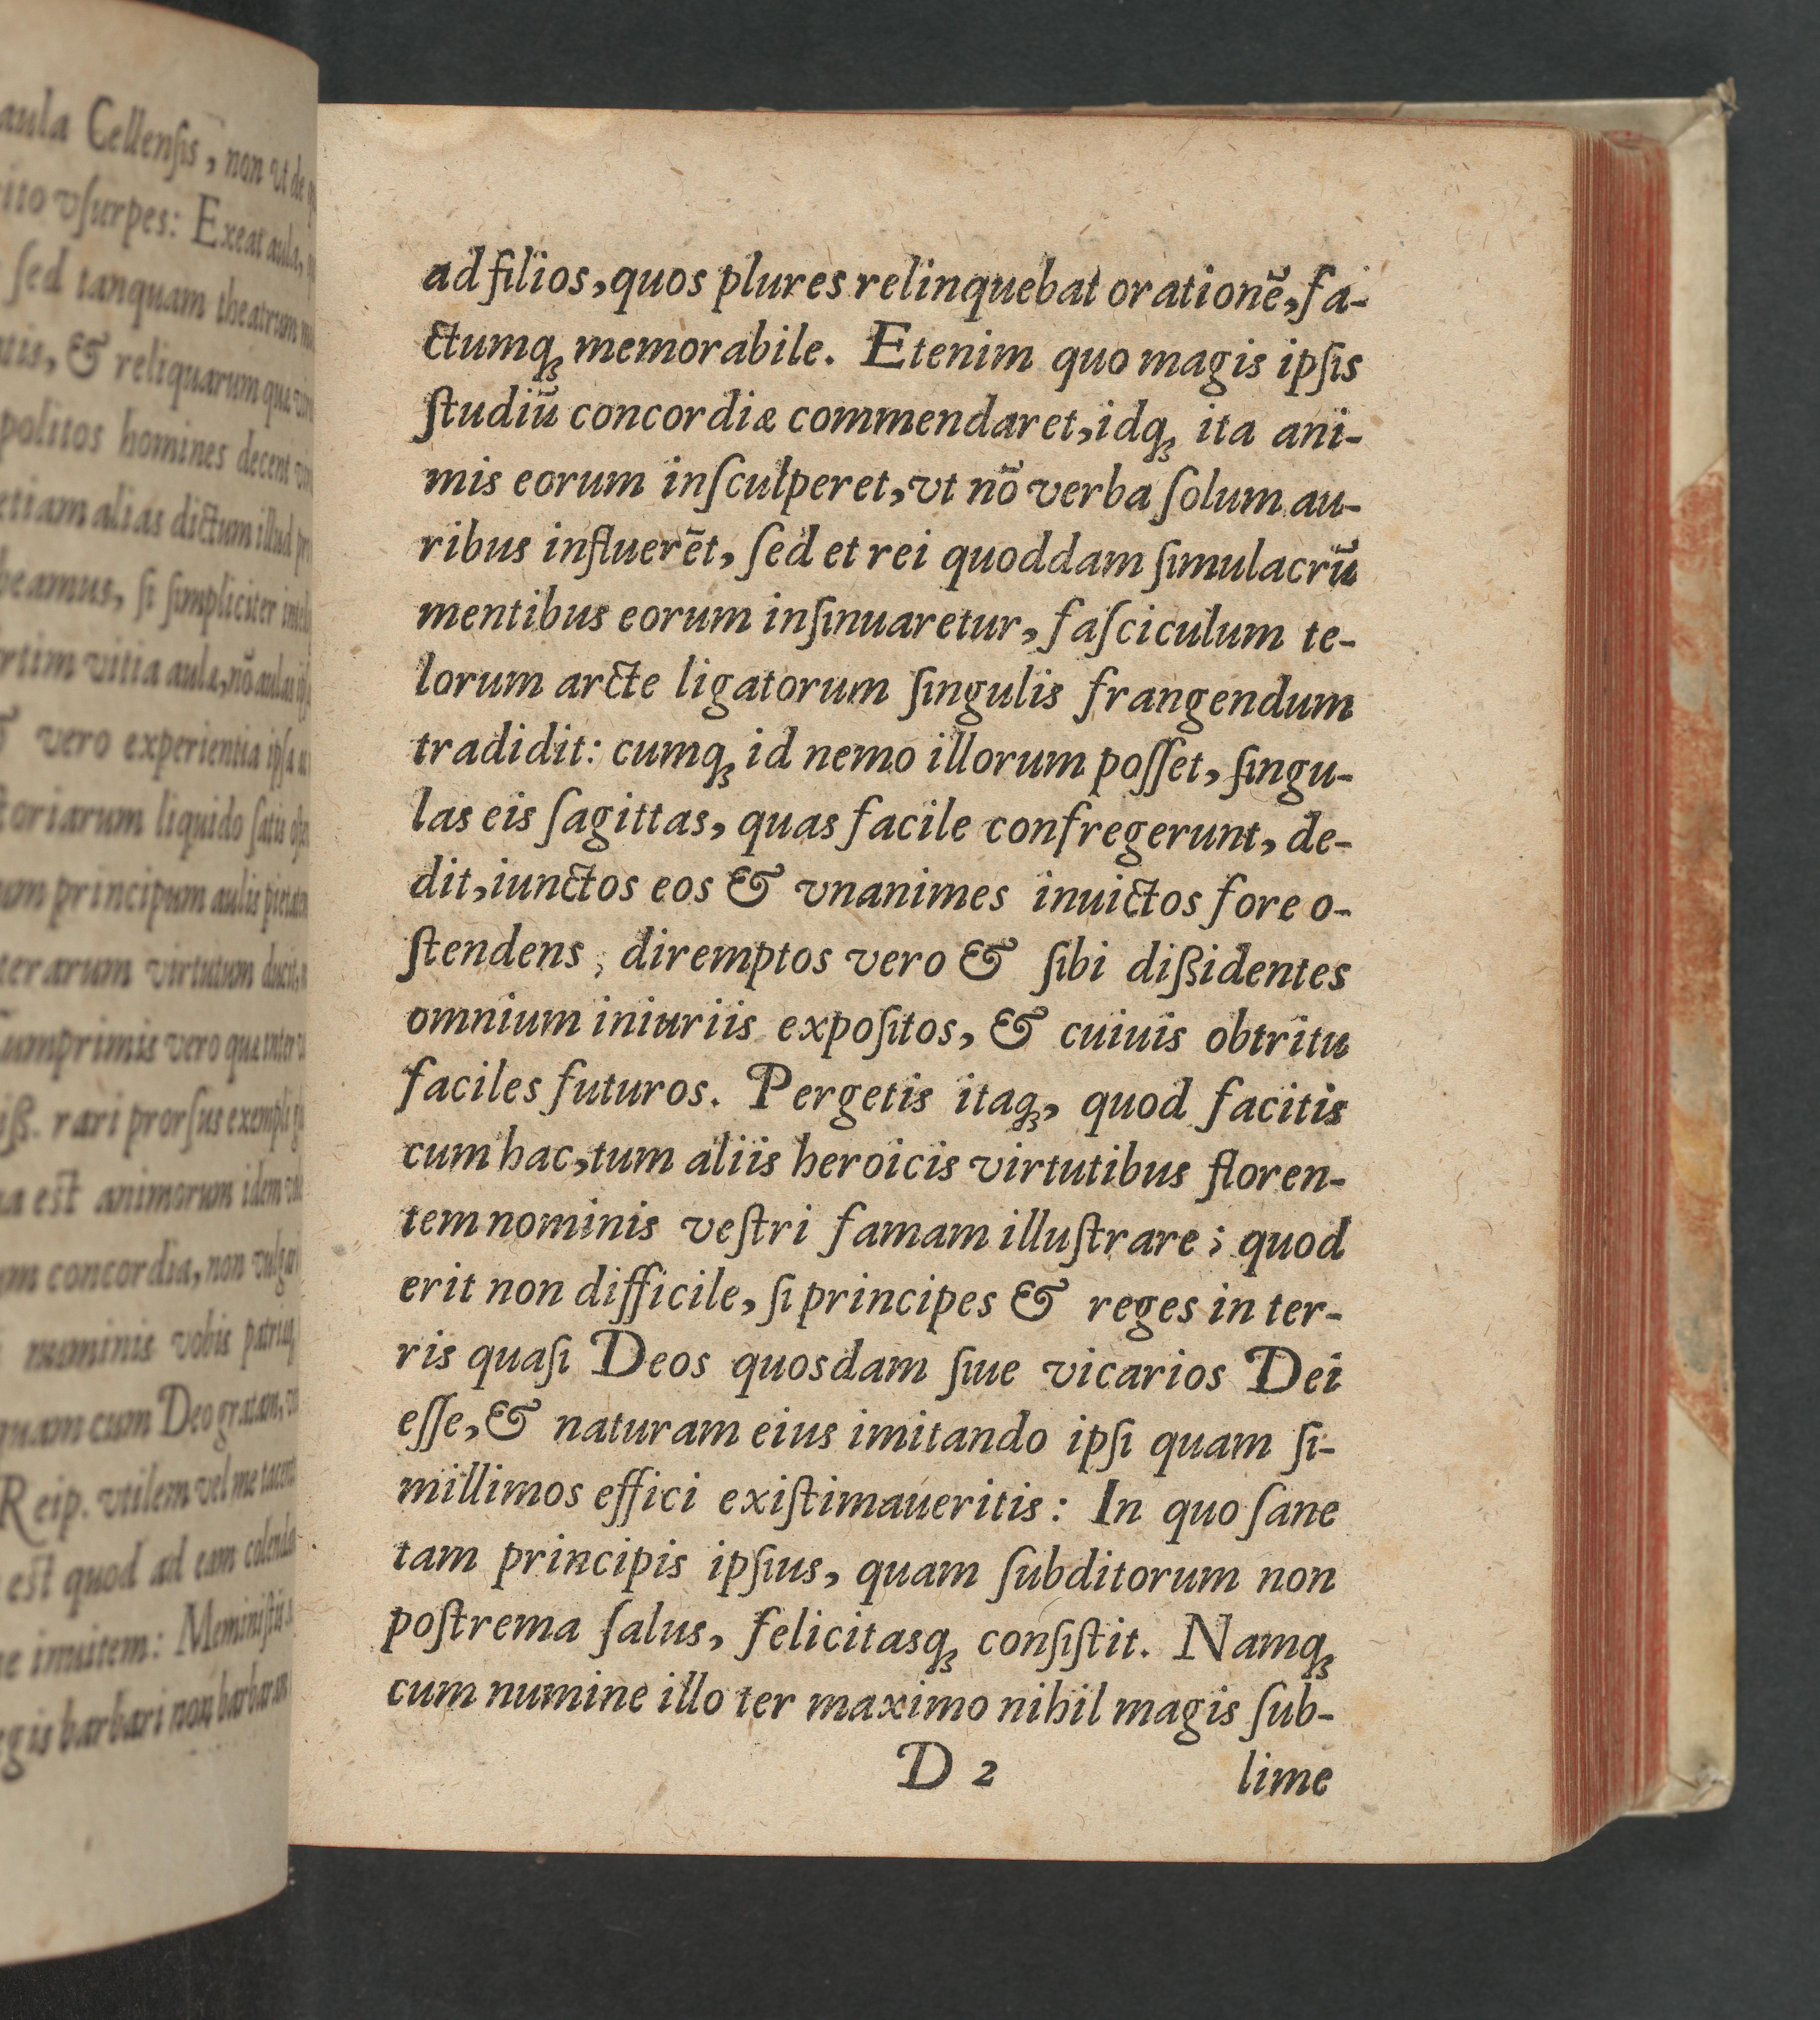 aula Cellenſis, non vt de
ito vſurpes: Exeat aula,
ſed tanquam theatrum
& reliquarum
politos homines decent
etiam alias dictum illud
beamus, ſi ſimpliciter
vitia aulæ, nō aulas
vero experientia ipſa
liquido ſatis
principum aulis
virtutum
vero
rari prorſus exempli
eſt animorum idem
concordia, non vulgari
numinis vobis
quam cum Deo gratam,
Reip. vtilem vel me tacente
eſt quod ad eam
imitem:
barbari non
ad filios, quos plures relinquebat orationē, fa-
ctumq; memorabile. Etenim quo magis ipſis
ſtudiū concordiæ commendaret, idq; ita ani-
mis eorum inſculperet, vt nō verba ſolum au-
ribus influerēt, ſed et rei quoddam ſimulacrū
mentibus eorum inſinuaretur, faſciculum te-
lorum arcte ligatorum ſingulis frangendum
tradidit: cumq; id nemo illorum poſſet, ſingu-
las eis ſagittas, quas facile confregerunt, de-
dit, iunctos eos & vnanimes inuictos fore o-
ſtendens, diremptos vero & ſibi dißidentes
omnium iniuriis expoſitos, & cuiuis obtritu
faciles futuros. Pergetis itaq;, quod facitis
cum hac, tum aliis heroicis virtutibus floren-
tem nominis veſtri famam illuſtrare; quod
erit non difficile, ſi principes & reges in ter-
ris quaſi Deos quosdam ſiue vicarios Dei
eſſe, & naturam eius imitando ipſi quam ſi-
millimos effici exiſtimaueritis: In quo ſane
tam principis ipſius, quam ſubditorum non
poſtrema ſalus, felicitasq; conſiſtit. Namq;
cum numine illo ter maximo nihil magis ſub-
D 2 lime